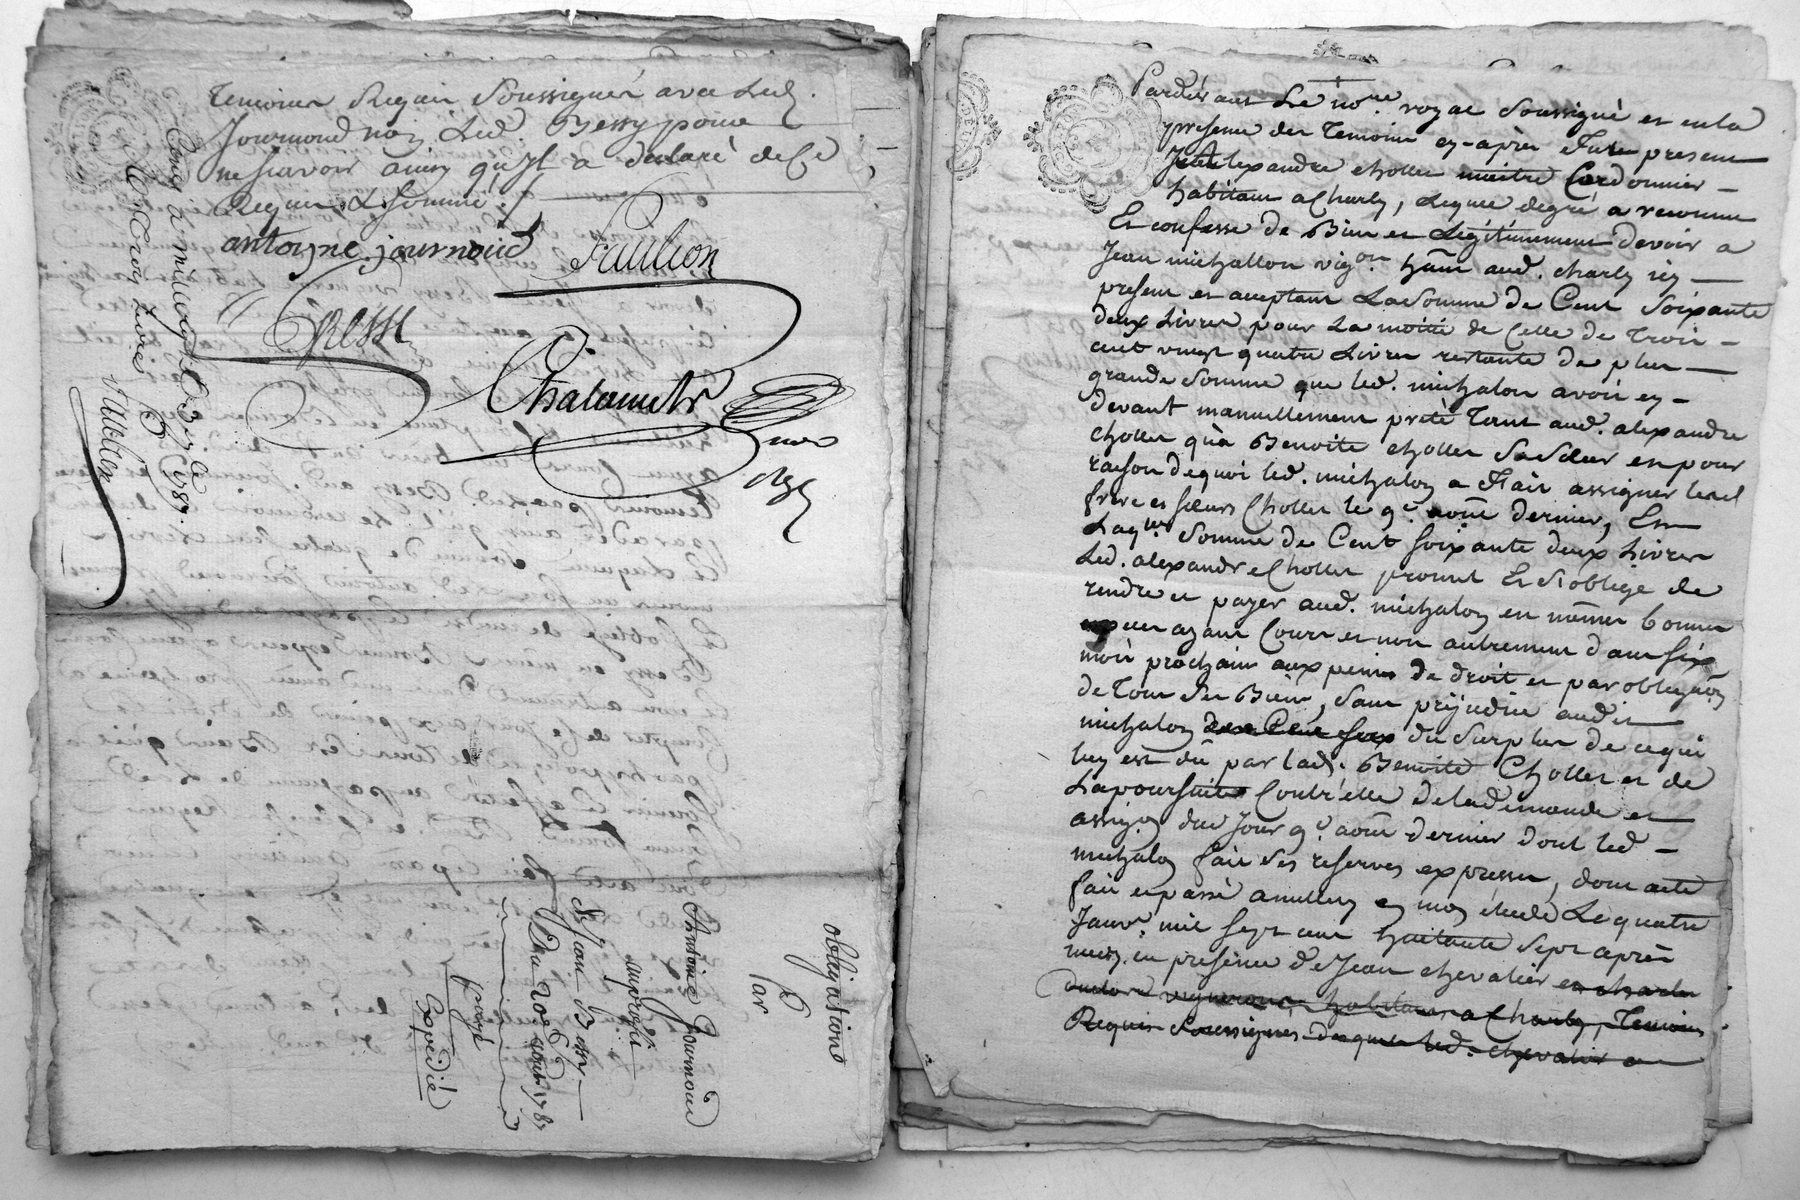 temoins Requis soussignés avec led.
Journoud non led. Bessy pour
ne sçavoir ainsy qu'il a declaré de ce
Requis & sommé ./.
antoyne journoud
Faulion
Chalamet
Conq a millery le 3 7bre 1787.
Obligasiono
Par
Antoine Journoud
au proffit
de Jean Bessy
Du 20e aout 1787
payé
Expedié
Pardevant Le nore. royal soussigné et en la
presence des Temoins cy-après fut present
Alexandre chollet maitre Cordonnier
habitant a Charly, Lequel de gré a reconnu
Et confessé de Bien et Légitimement devoir a
Jean michallon vigon. hant. aud. charly icy
present et aceptant La Somme de Cent Soixante
deux Livres pour La moitié de Celle de Trois
cent vingt quatre Livres restante de plus
grande Somme que led. michalon avoit cy-
devant manuellement preté Tant aud. alexandre
chollet qu'a Benoite chollet Sa Sœur et pour
raison de quoi led. michalon a Fait assigner lesd
frere et sœur Chollet le 9e. aout dernier, Et
Laqlle Somme de Cent soixante deux Livres
Led. alexandre Chollet promet Et S'oblige de
rendre et payer aud. michalon en mêmes bonnes
especes ayant Cours et non autrement dans six
mois prochain aux peines de droit et par obligaon
de Tous Ses Biens, Sans préjudice audit
michalon du Surplus de ce qui
luy est dû par lad. Benoite Chollet et de
La poursuite Contr'elle de la demande et
assigon du Jour 9e. aout dernier dont led
michalon fait Ses reserves expresses, dont acte
fait et passé a millery en mon étude Le quatre
Janvr. mil sept cent huitante Sept après
midy en présence de Jean chevalier et charles
vignerons, habitants a Charly, Temoins
Requis Soussignés led. chevalier